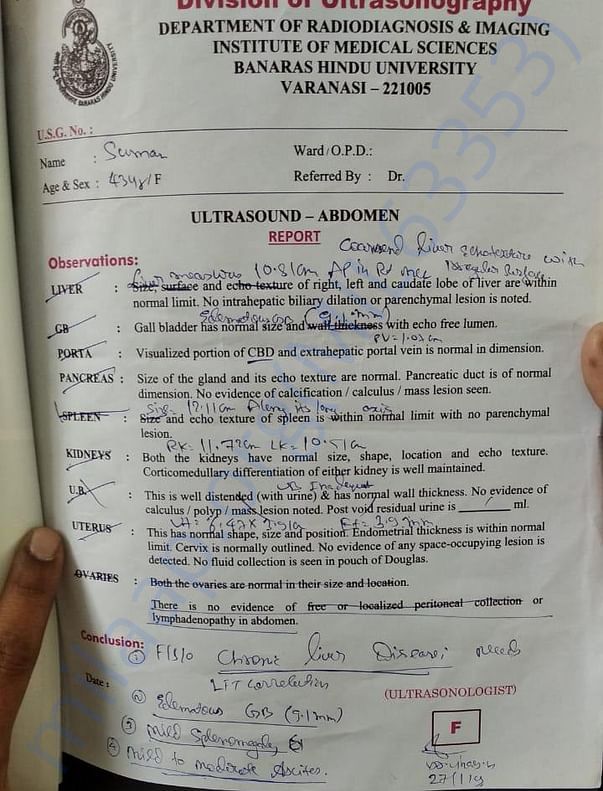 Division of Ultrasonography
DEPARTMENT OF RADIODIAGNOSIS & IMAGING
INSTITUTE OF MEDICAL SCIENCES
BANARAS HINDU UNIVERSITY
VARANASI – 221005
U.S.G. No. :
Name : Suman Ward / O.P.D.:
Age & Sex : 43yr/F Referred By : Dr.
ULTRASOUND – ABDOMEN
REPORT
Coarsened liver echotexture with
Irregular surface
Observations:
Liver measures 10.81cm AP in
LIVER : Size, surface and echo texture of right, left and caudate lobe of liver are within
normal limit. No intrahepatic biliary dilation or parenchymal lesion is noted.
Edematous GB
GB : Gall bladder has normal size and wall thickness with echo free lumen.
PV = 1.03cm
PORTA : Visualized portion of CBD and extrahepatic portal vein is normal in dimension.
PANCREAS : Size of the gland and its echo texture are normal. Pancreatic duct is of normal
dimension. No evidence of calcification / calculus / mass lesion seen.
Size = 12.11cm Along its long axis
SPLEEN : Size and echo texture of spleen is within normal limit with no parenchymal
lesion.
RK = 11.72cm LK = 10.51cm
KIDNEYS : Both the kidneys have normal size, shape, location and echo texture.
Corticomedullary differentiation of either kidney is well maintained.
UB Inadequat
U.B. : This is well distended (with urine) & has normal wall thickness. No evidence of
calculus / polyp / mass lesion noted. Post void residual urine is ______ ml.
Et = 3.9 mm
UTERUS : This has normal shape, size and position. Endometrial thickness is within normal
limit. Cervix is normally outlined. No evidence of any space-occupying lesion is
detected. No fluid collection is seen in pouch of Douglas.
OVARIES : Both the ovaries are normal in their size and location.
There is no evidence of free or localized peritoneal collection or
lymphadenopathy in abdomen.
Conclusion:
① F/S/O Chronic liver Disease; needs
LFT Correlation
Date :
② Edematous GB (9.1mm)
(ULTRASONOLOGIST)
③ Mild Splenomegaly
F
④ Mild to moderate Ascites.
27/1/19
milaap.org